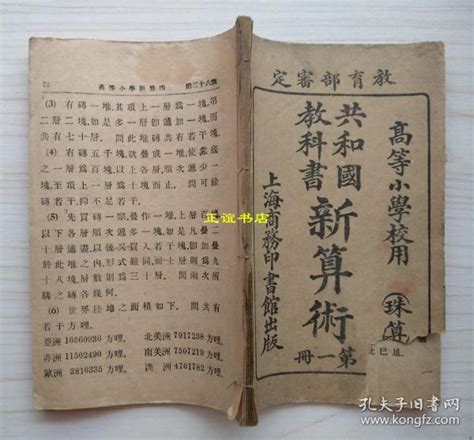 72 高等小學新算術 第三十六課
(3) 有磚一堆,其頂上一層爲一塊,第
二層二塊,
共有七十層. 問此堆共有磚若干塊.
(4) 有磚五千塊,欲疊成一堆,使底
之一層爲百塊,以上各層順次遞少一
塊,至頂上一層爲 塊而止. 問可餘
磚若干,抑不足若干.
(5) 先買磚一宗,疊作一堆,上層五塊,
以下各層順次
十層適盡,
於此堆之內,
十八塊,層數 爲三十層. 問兩次所
購之磚各幾何.
(6) 世界各洲之面積如下. 問共有
若干方哩.
亞洲 16560936 方哩, 北美洲 7917238 方哩,
非洲 11502490 方哩, 南美洲 7507219 方哩,
歐洲 3810335 方哩, 澳洲 4701782 方哩.
教育部審定
高等小學校用
珠算
共和國教科書
新算術
第一冊
上海商務印書館出版
正誼书店
孔夫子旧书网
kongfz.com